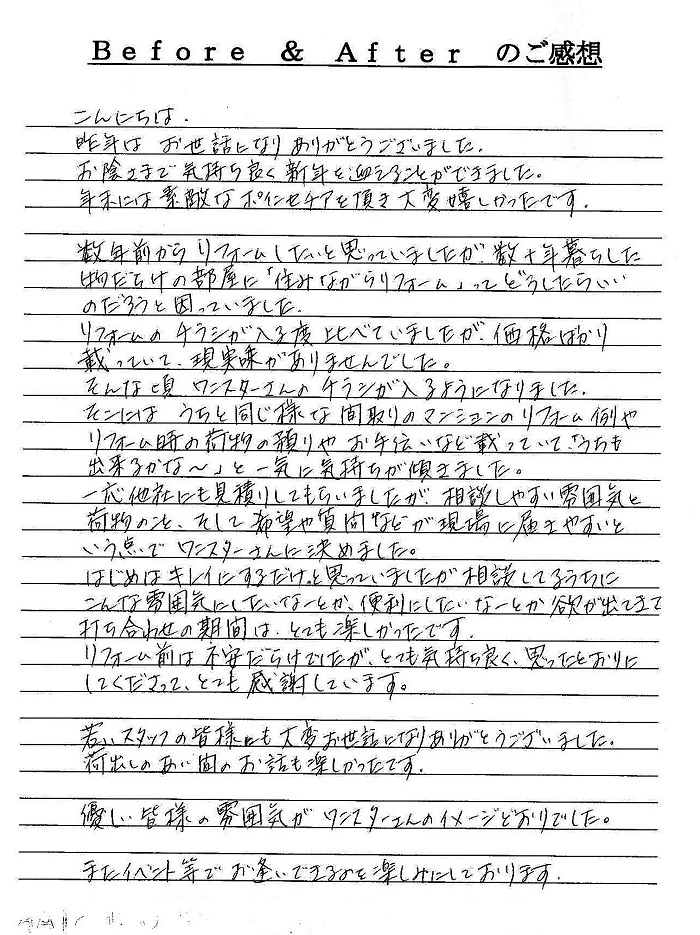 Before & After のご感想
こんにちは.
昨年は お世話になり ありがとうございました.
お陰さまで気持ち良く新年を迎えることができました。
年末には素敵なポインセチアを頂き大変嬉しかったです.
数年前からリフォームしたいと思っていましたが、数十年暮らした
物だらけの部屋に「住みながらリフォーム」ってどうしたらいい
のだろうと困っていました.
リフォームのチラシが入る度比べていましたが、価格ばかり
載っていて、現実味がありませんでした。
そんな頃 ワンスターさんのチラシが入るようになりました.
そこには うちと同じ様な間取りのマンションのリフォーム例や
リフォーム時の荷物の預りや お手伝いなど載っていて、「うちも
出来るかな〜」と一気に気持ちが傾きました。
一応他社にも見積りしてもらいましたが、相談しやすい雰囲気と
荷物のこと、そして希望や質問などが現場に届きやすいと
いう点でワンスターさんに決めました。
はじめはキレイにするだけと思っていましたが相談してるうちに
こんな雰囲気にしたいなーとか、便利にしたいなーとか欲が出てきて
打ち合わせの期間は、とても楽しかったです.
リフォーム前は不安だらけでしたが、とても気持ち良く、思ったとおりに
してくださって、とても感謝しています。
若いスタッフの皆様にも大変お世話になりありがとうございました.
荷出しのあい間のお話も楽しかったです.
優しい皆様の雰囲気がワンスターさんのイメージどおりでした。
またイベント等でお逢いできるのを楽しみにしております.